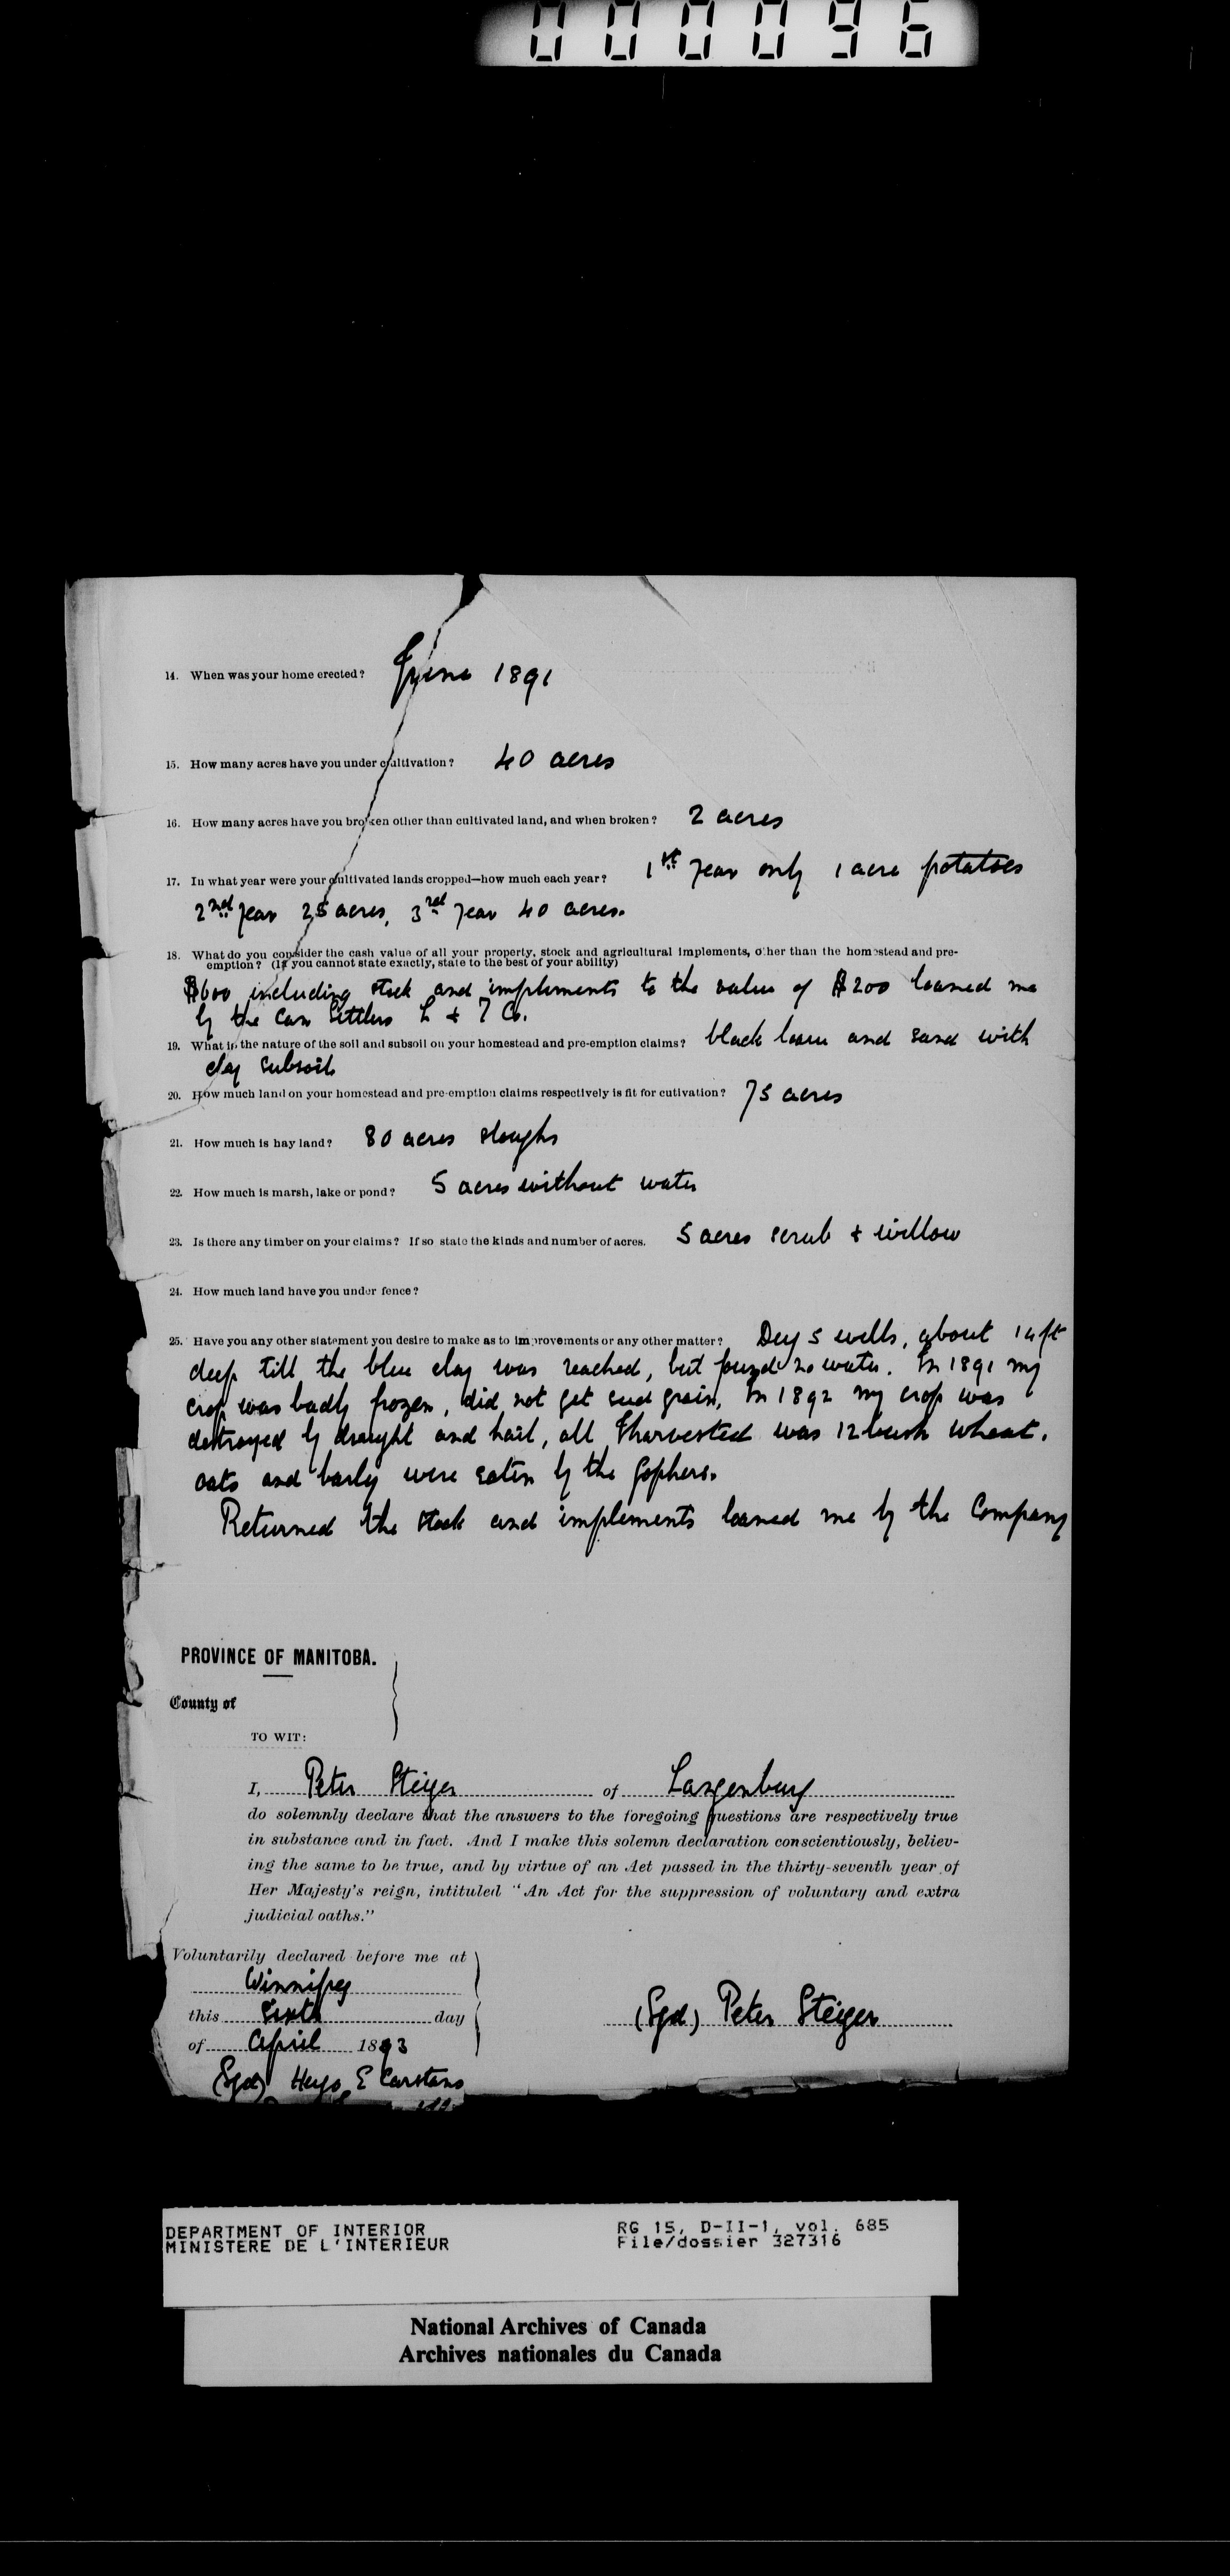 000096
14. When was your home erected? June 1891
15. How many acres have you under cultivation? 40 acres
16. How many acres have you broken other than cultivated land, and when broken? 2 acres
17. In what year were your cultivated lands cropped—how much each year? 1st year only 1 acre potatoes
2nd year 25 acres, 3rd year 40 acres.
18. What do you consider the cash value of all your property, stock and agricultural implements, other than the homestead and pre-
emption? (If you cannot state exactly, state to the best of your ability)
$600 including stock and implements to the value of $200 loaned me
by the Can Settlers L & T Co.
19. What is the nature of the soil and subsoil on your homestead and pre-emption claims? black loam and sand with
clay subsoil
20. How much land on your homestead and pre-emption claims respectively is fit for cutivation? 75 acres
21. How much is hay land? 80 acres sloughs
22. How much is marsh, lake or pond? 5 acres without water
23. Is there any timber on your claims? If so state the kinds and number of acres. 5 acres scrub & willow
24. How much land have you under fence?
25. Have you any other statement you desire to make as to improvements or any other matter? Dug 5 wells, about 14 ft
deep till the blue clay was reached, but found no water. In 1891 my
crop was badly frozen, did not get seed grain, In 1892 my crop was
destroyed by draught and hail, all I harvested was 12 bush wheat.
oats and barly were eaten by the gophers.
Returned the stock and implements loaned me by the Company
PROVINCE OF MANITOBA.
County of
TO WIT:
I, Peter Steiger of Langenburg
do solemnly declare that the answers to the foregoing questions are respectively true
in substance and in fact. And I make this solemn declaration conscientiously, believ-
ing the same to be true, and by virtue of an Act passed in the thirty-seventh year of
Her Majesty's reign, intituled "An Act for the suppression of voluntary and extra
judicial oaths."
Voluntarily declared before me at
Winnipeg
this sixth day
of April 1893
(Sgd) Peter Steiger
(Sgd) Hugo E Carstens
DEPARTMENT OF INTERIOR
MINISTERE DE L'INTERIEUR
RG 15, D-II-1, vol. 685
File/dossier 327316
National Archives of Canada
Archives nationales du Canada